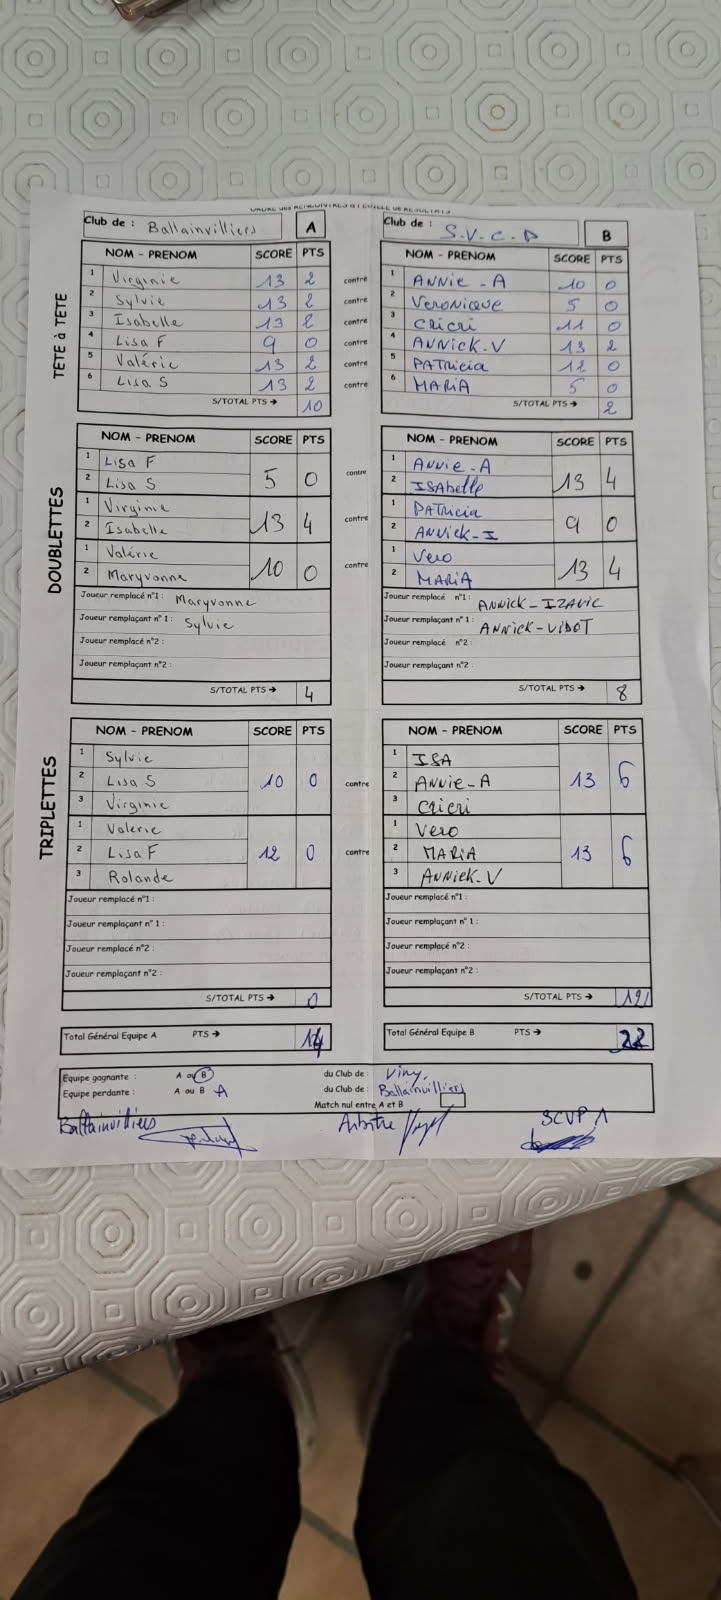 ORDRE DES RENCONTRES & FEUILLE DE RESULTATS
Club de : Ballainvilliers A
Club de : S.V.C.P B
TETE à TETE
NOM - PRENOM SCORE PTS
NOM - PRENOM SCORE PTS
1 Virginie 13 2 contre 1 ANNiE - A 10 0
2 Sylvie 13 2 contre 2 VERONiQUE 5 0
3 Isabelle 13 2 contre 3 CRiCRi 11 0
4 Lisa F 9 0 contre 4 ANNicK.V 13 2
5 Valérie 13 2 contre 5 PATRicia 12 0
6 Lisa S 13 2 contre 6 MARiA 5 0
S/TOTAL PTS → 10
S/TOTAL PTS → 2
DOUBLETTES
NOM - PRENOM SCORE PTS
NOM - PRENOM SCORE PTS
1 Lisa F
2 Lisa S 5 0
contre
1 ANNiE - A
2 ISAbelle 13 4
1 Virginie
2 Isabelle 13 4
contre
1 PATRicia
2 ANNicK - I 9 0
1 Valérie
2 Maryvonne 10 0
contre
1 Vero
2 MARiA 13 4
Joueur remplacé n°1 : Maryvonne
Joueur remplaçant n° 1 : Sylvie
Joueur remplacé n°2 :
Joueur remplaçant n°2 :
Joueur remplacé n°1 : ANNICK - IZAVIC
Joueur remplaçant n° 1 : ANNICK - VIDOT
Joueur remplacé n°2 :
Joueur remplaçant n°2 :
S/TOTAL PTS → 4
S/TOTAL PTS → 8
TRIPLETTES
NOM - PRENOM SCORE PTS
NOM - PRENOM SCORE PTS
1 Sylvie
2 Lisa S 10 0
3 Virginie
contre
1 ISA
2 ANNiE - A 13 6
3 CRiCRi
1 Valérie
2 Lisa F 12 0
3 Rolande
contre
1 Vero
2 MARiA 13 6
3 ANNicK.V
Joueur remplacé n°1 :
Joueur remplaçant n° 1 :
Joueur remplacé n°2 :
Joueur remplaçant n°2 :
Joueur remplacé n°1 :
Joueur remplaçant n° 1 :
Joueur remplacé n°2 :
Joueur remplaçant n°2 :
S/TOTAL PTS → 0
S/TOTAL PTS → 12
Total Général Equipe A PTS → 14
Total Général Equipe B PTS → 22
Equipe gagnante : A ou B du Club de : Viry
Equipe perdante : A ou B A du Club de : Ballainvilliers
Match nul entre A et B
Ballainvilliers
Arbitre
SCVP 1